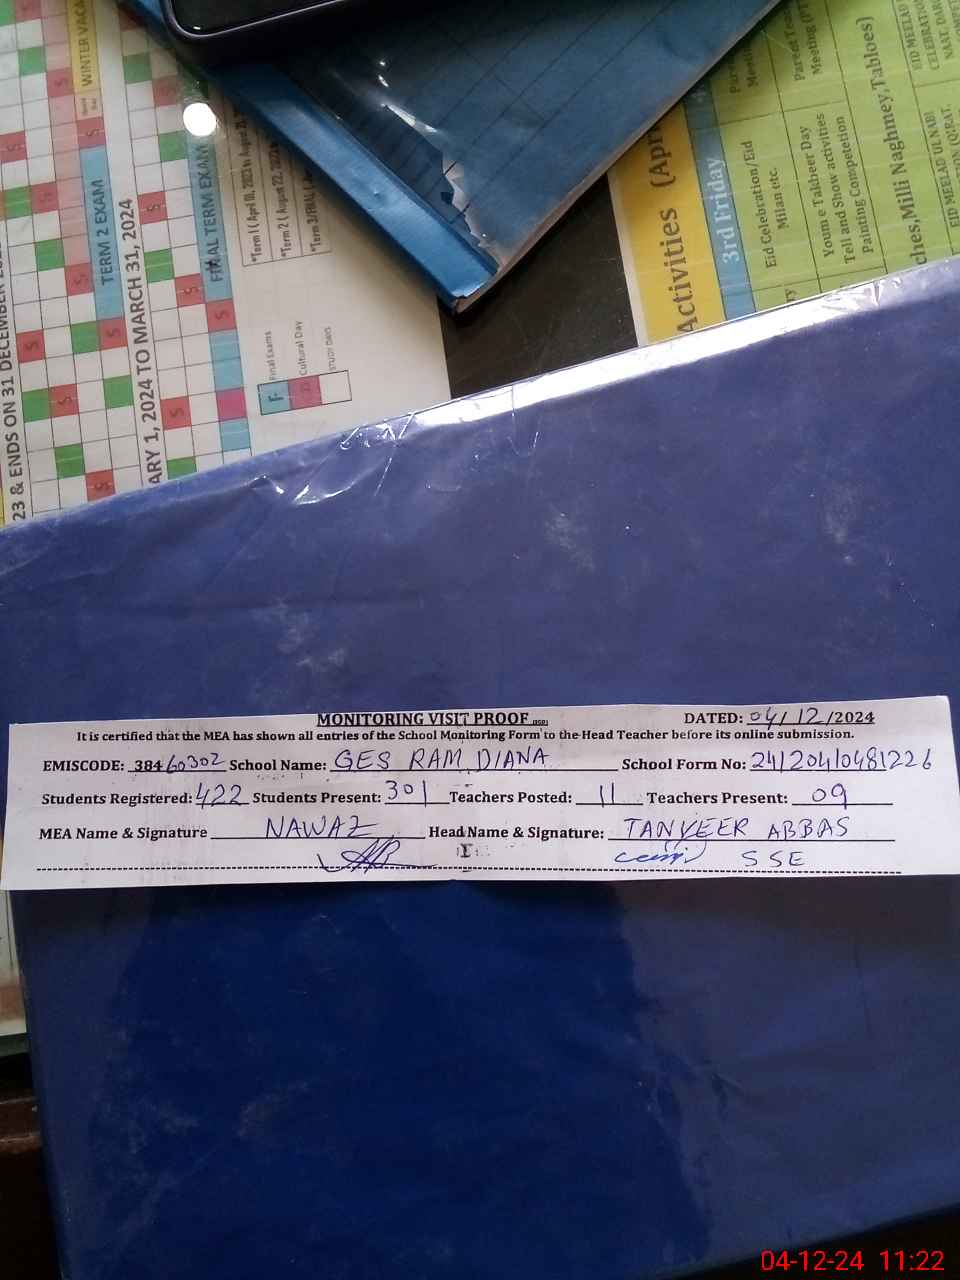 23 & ENDS ON 31 DECEMBER
WINTER VACA
TERM 2 EXAM
ARY 1, 2024 TO MARCH 31, 2024
FINAL TERM EXAM
*Term 1 ( April 01, 2023 to August 21, 
*Term 2 ( August 22, 2023
*Term 3/FINAL (
F
Final Exams
Cultural Day
STUDY DAYS
Activities (Apri
3rd Friday
Eid Celebration/Eid
Milan etc.
Youm e Takheer Day
Tell and Show activities
Painting Competetion
Parent Tea
Meeting (PT
ches,Milli Naghmey,Tabloes)
EID MEELAD
CELEBRATION
NAAT, DAR
EID MEELAD UL NABI
MONITORING VISIT PROOF
DATED: 04/12/2024
It is certified that the MEA has shown all entries of the School Monitoring Form to the Head Teacher before its online submission.
EMISCODE: 38460302 School Name: GES RAM DIANA School Form No: 24120410481226
Students Registered: 422 Students Present: 301 Teachers Posted: 11 Teachers Present: 09
MEA Name & Signature NAWAZ Head Name & Signature: TANVEER ABBAS
SSE
04-12-24 11:22